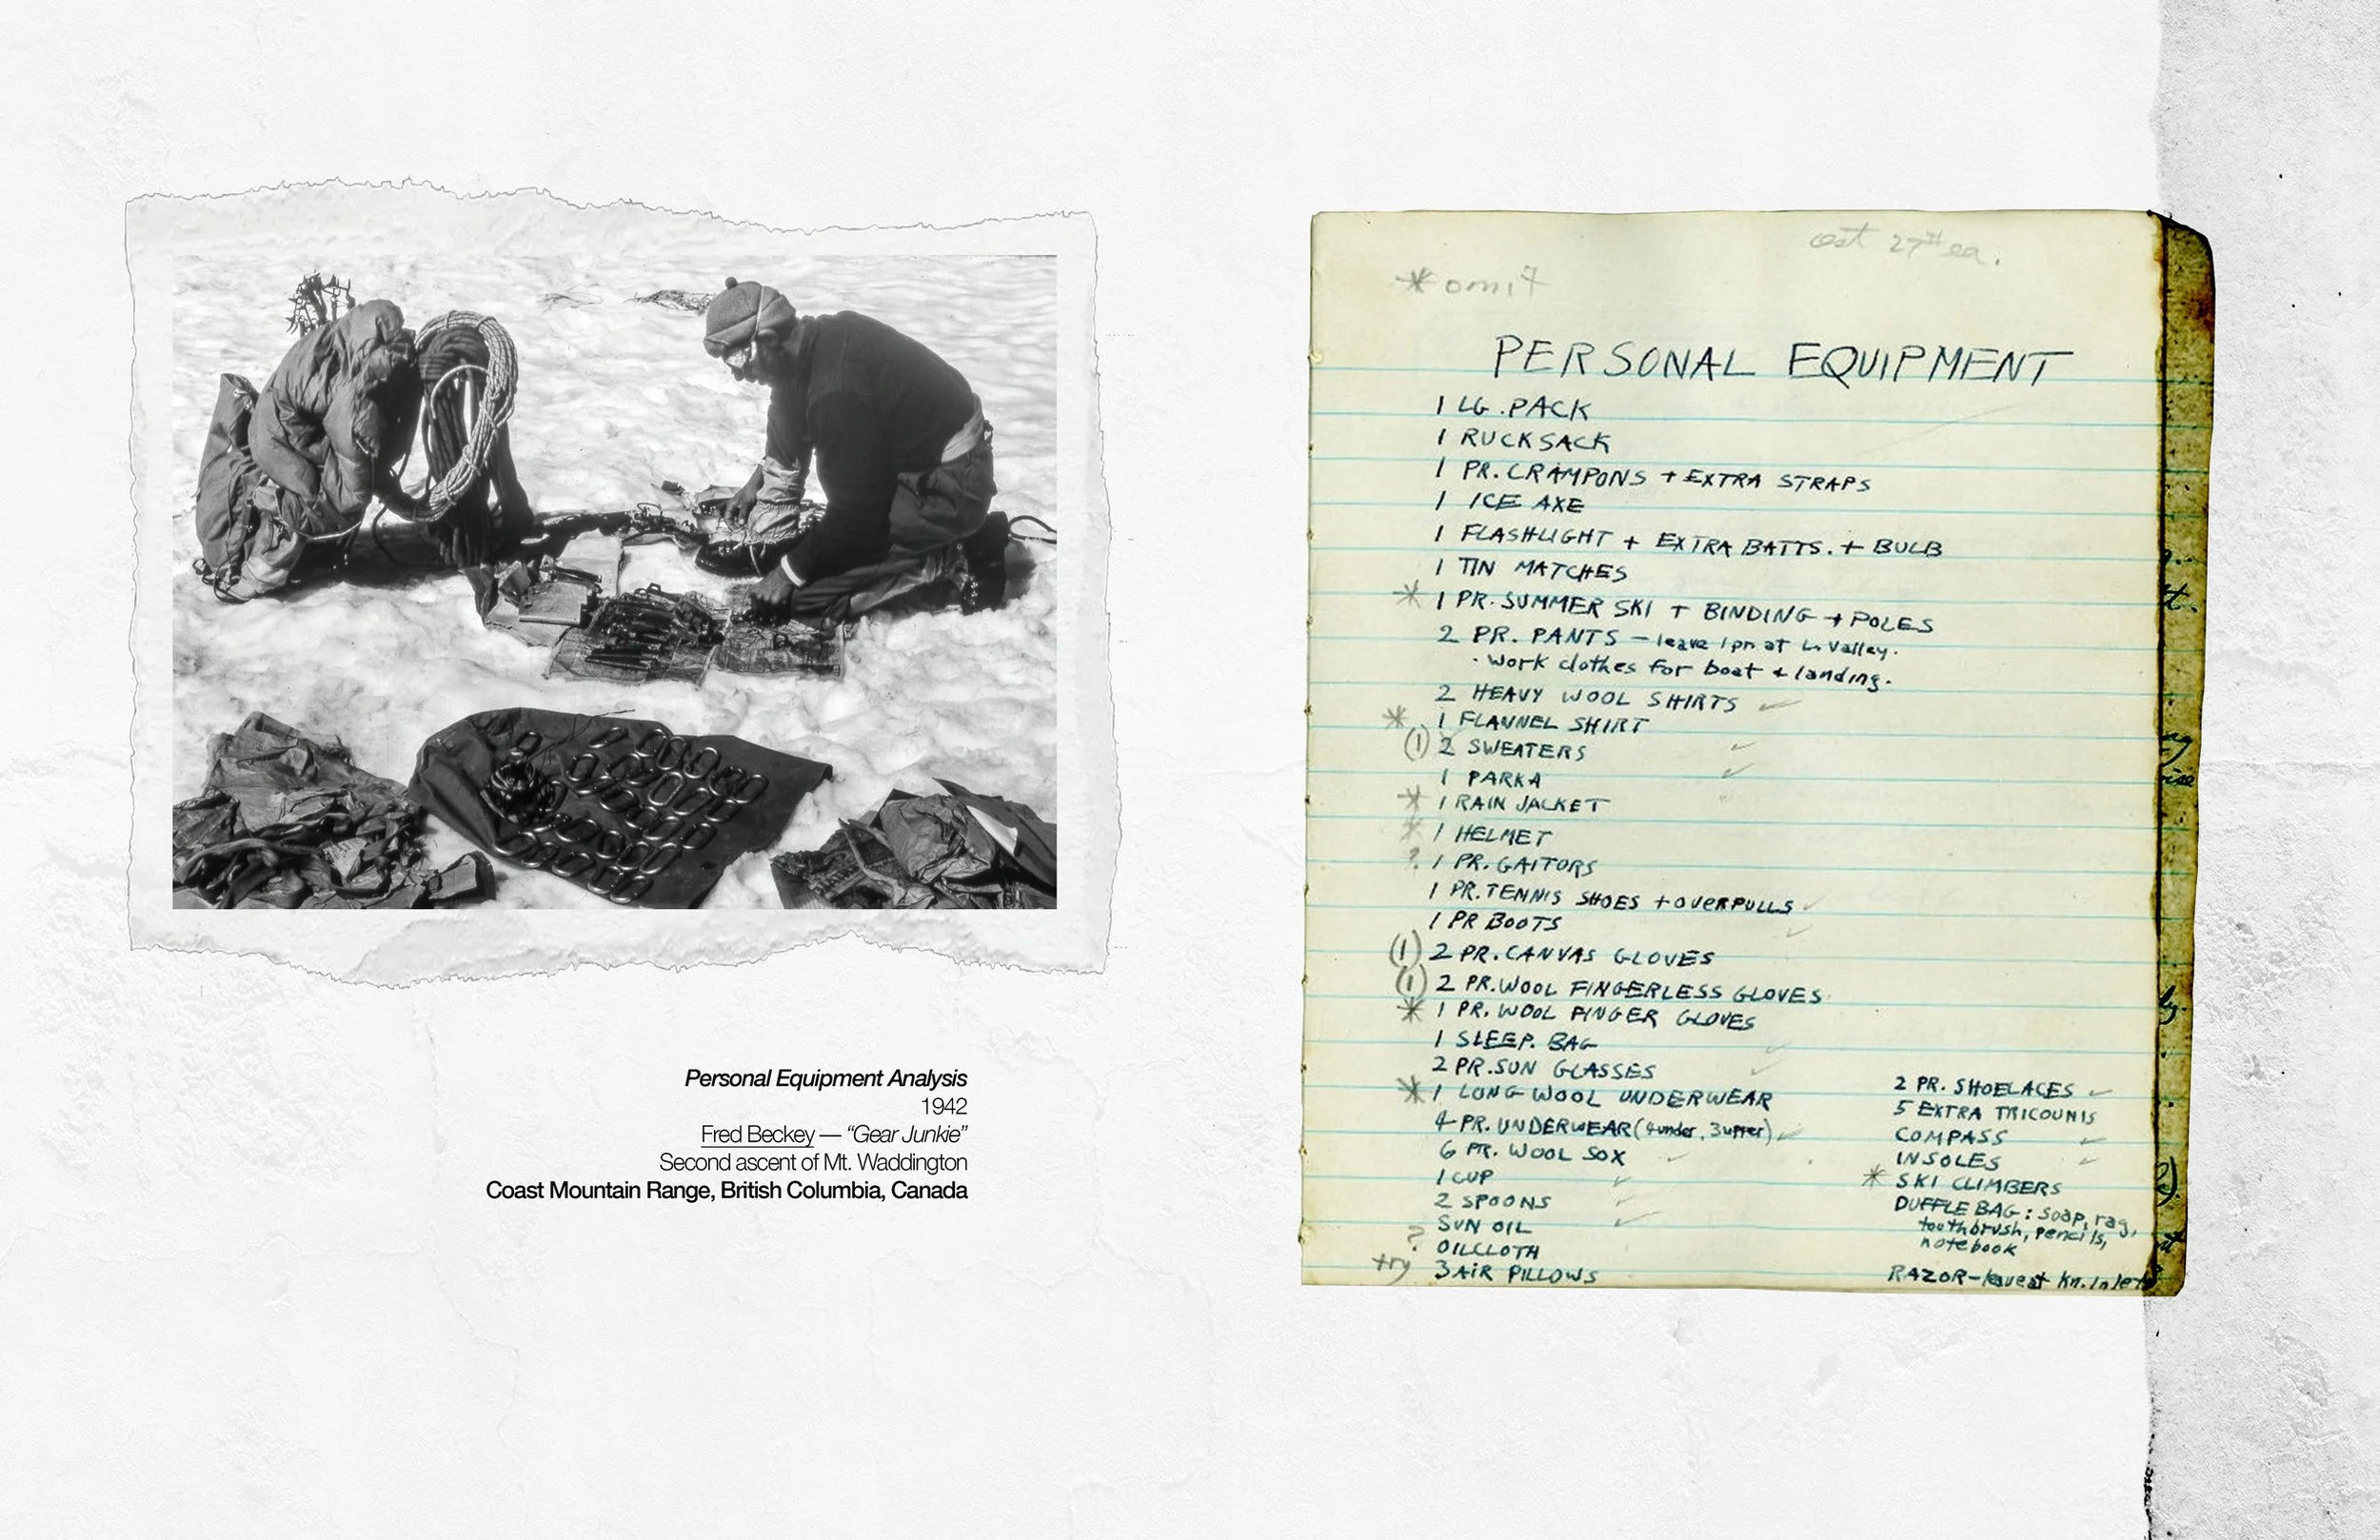 Personal Equipment Analysis
1942
Fred Beckey — “Gear Junkie”
Second ascent of Mt. Waddington
Coast Mountain Range, British Columbia, Canada
cost 27 ea.
* omit
PERSONAL EQUIPMENT
1 LG. PACK
1 RUCKSACK
1 PR. CRAMPONS + EXTRA STRAPS
1 ICE AXE
1 FLASHLIGHT + EXTRA BATTS. + BULB
1 TIN MATCHES
* 1 PR. SUMMER SKI + BINDING + POLES
2 PR. PANTS – leave 1 pr. at L. Valley.
· Work clothes for boat + landing.
2 HEAVY WOOL SHIRTS ✓
* 1 FLANNEL SHIRT
(1) 2 SWEATERS ✓
1 PARKA ✓
* 1 RAIN JACKET
* 1 HELMET
? 1 PR. GAITORS
1 PR. TENNIS SHOES + OVERPULLS ✓
1 PR BOOTS ✓
(1) 2 PR. CANVAS GLOVES
(1) 2 PR. WOOL FINGERLESS GLOVES
* 1 PR. WOOL FINGER GLOVES
1 SLEEP. BAG ✓
2 PR. SUN GLASSES ✓
* 1 LONG WOOL UNDERWEAR
4 PR. UNDERWEAR (4 under, 3 upper) ✓
6 PR. WOOL SOX ✓
1 CUP ✓
2 SPOONS ✓
SUN OIL ✓
? OILCLOTH
try 3 AIR PILLOWS
2 PR. SHOELACES ✓
5 EXTRA TRICOUNIS
COMPASS ✓
INSOLES ✓
* SKI CLIMBERS
DUFFLE BAG: soap, rag,
toothbrush, pencils,
notebook
RAZOR – leave at Kn. Inlet